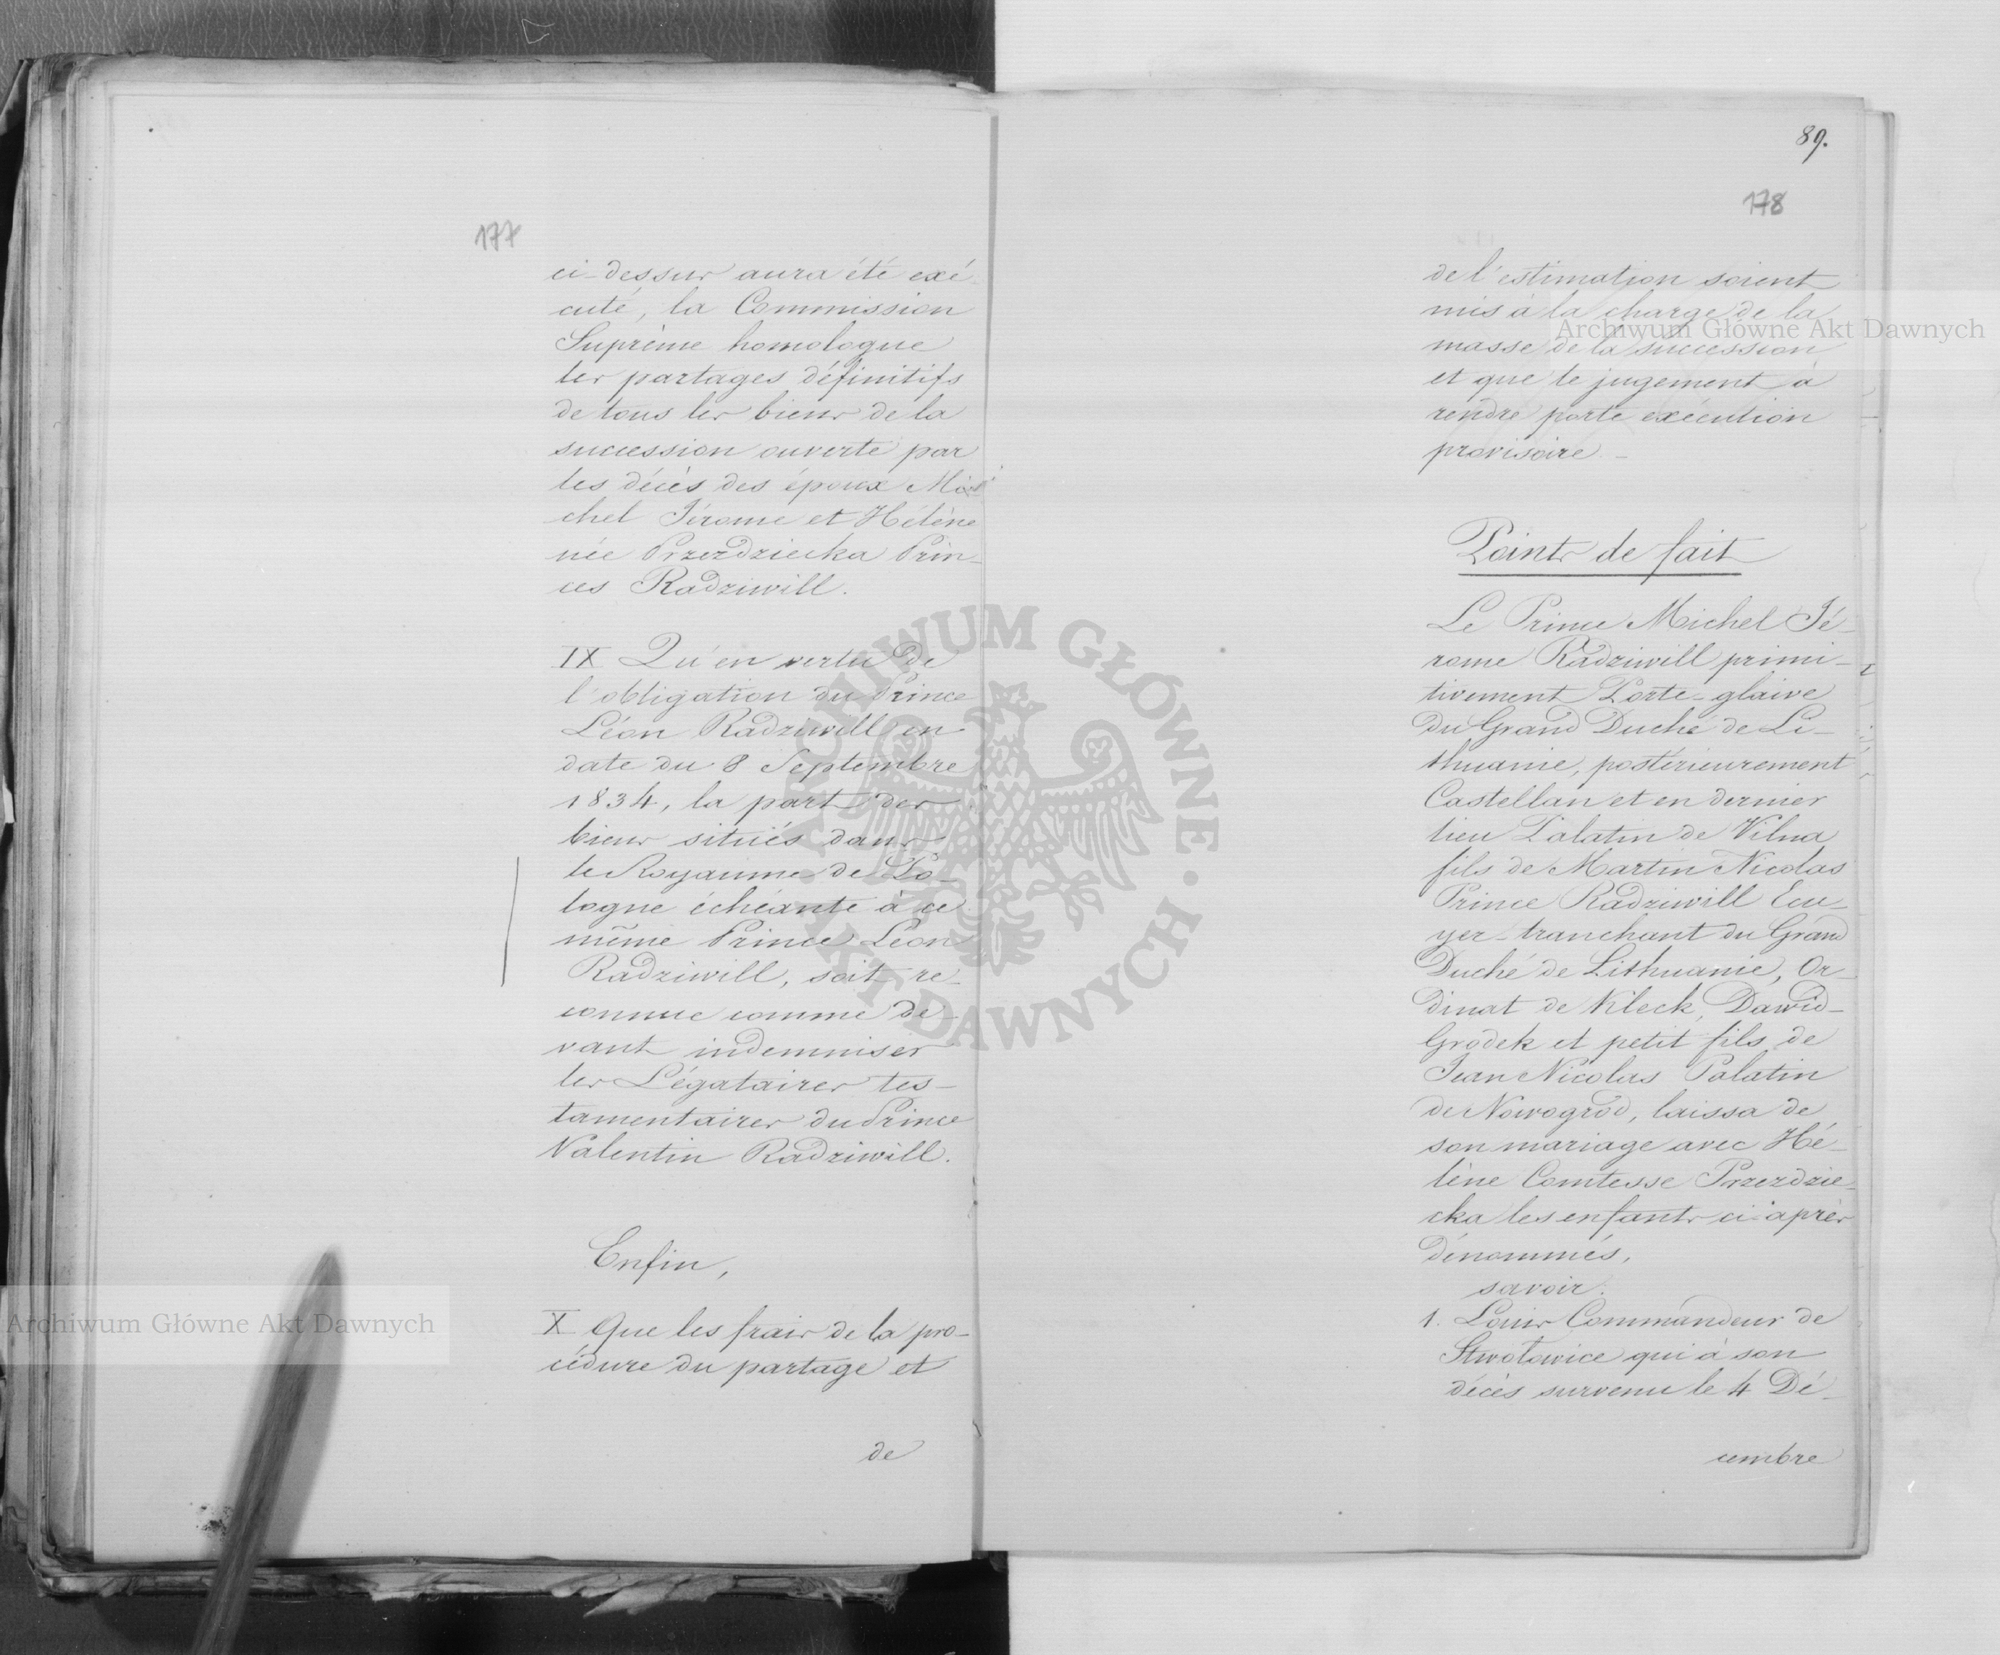 177
ci-dessus aura été exé-
cuté, la Commission
Suprème homologue
les partages définitifs
de tous les biens de la
succession ouverte par
les décès des époux Mi-
chel Jérome et Hélène
née Przezdziecka Prin-
ces Radziwill.
IX Qu'en vertu de
l'obligation du Prince
Léon Radziwill en
date du 8 Septembre
1834, la part des
biens situés dans
le Royaume de Po-
logne échéante à ce
même Prince Léon
Radziwill, soit re-
connue comme de-
vant indemniser
les Légataires tes-
tamentaires du Prince
Valentin Radziwill.
Enfin,
X Que les frais de la pro-
cédure du partage et
de
89.
178
de l'estimation soient
mis à la charge de la
masse de la succession
et que le jugement à
rendre porte exécution
provisoire. -
Points de fait
Le Prince Michel Jé-
rome Radziwill primi-
tivement Porte-glaive
du Grand Duché de Li-
thuanie, postérieurement
Castellan et en dernier
lieu Palatin de Vilna
fils de Martin Nicolas
Prince Radziwill Ecu-
yer-tranchant du Grand
Duché de Lithuanie, Or-
dinat de Kleck, Dawid-
Grodek et petit fils de
Jean Nicolas Palatin
de Nowogrod, laissa de
son mariage avec Hé-
lène Comtesse Przezdzie-
cka les enfants ci-après
dénommés,
savoir.
1. Louis Commandeur de
Stwolowice qui à son
décès survenu le 4 Dé-
cembre
Archiwum Główne Akt Dawnych
Archiwum Główne Akt Dawnych
ARCHIWUM GŁÓWNE · AKT DAWNYCH ·